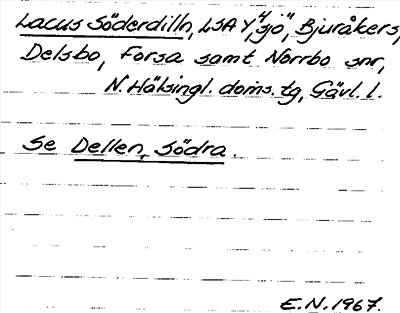 Lacus Söderdilln, LSA Y4, "sjö", Bjuråkers,
Delsbo, Forsa samt Norrbo snr,
N. Hälsingl. doms. tg, Gävl. l.
Se Dellen, Södra.
E.N. 1967.